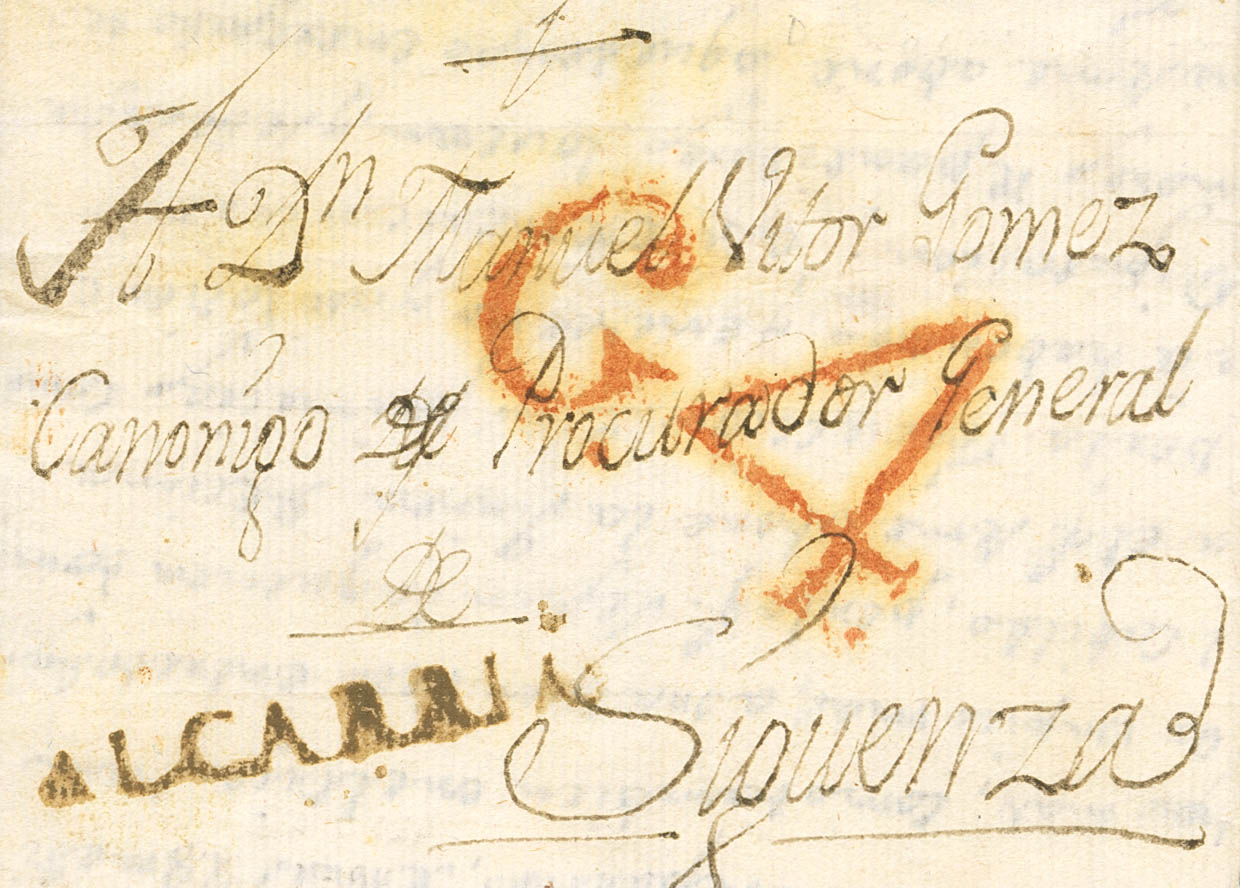 A Dn Manuel Vitor Gomez
Canonigo Procurador General
De
ALCARRIA
Siguenza